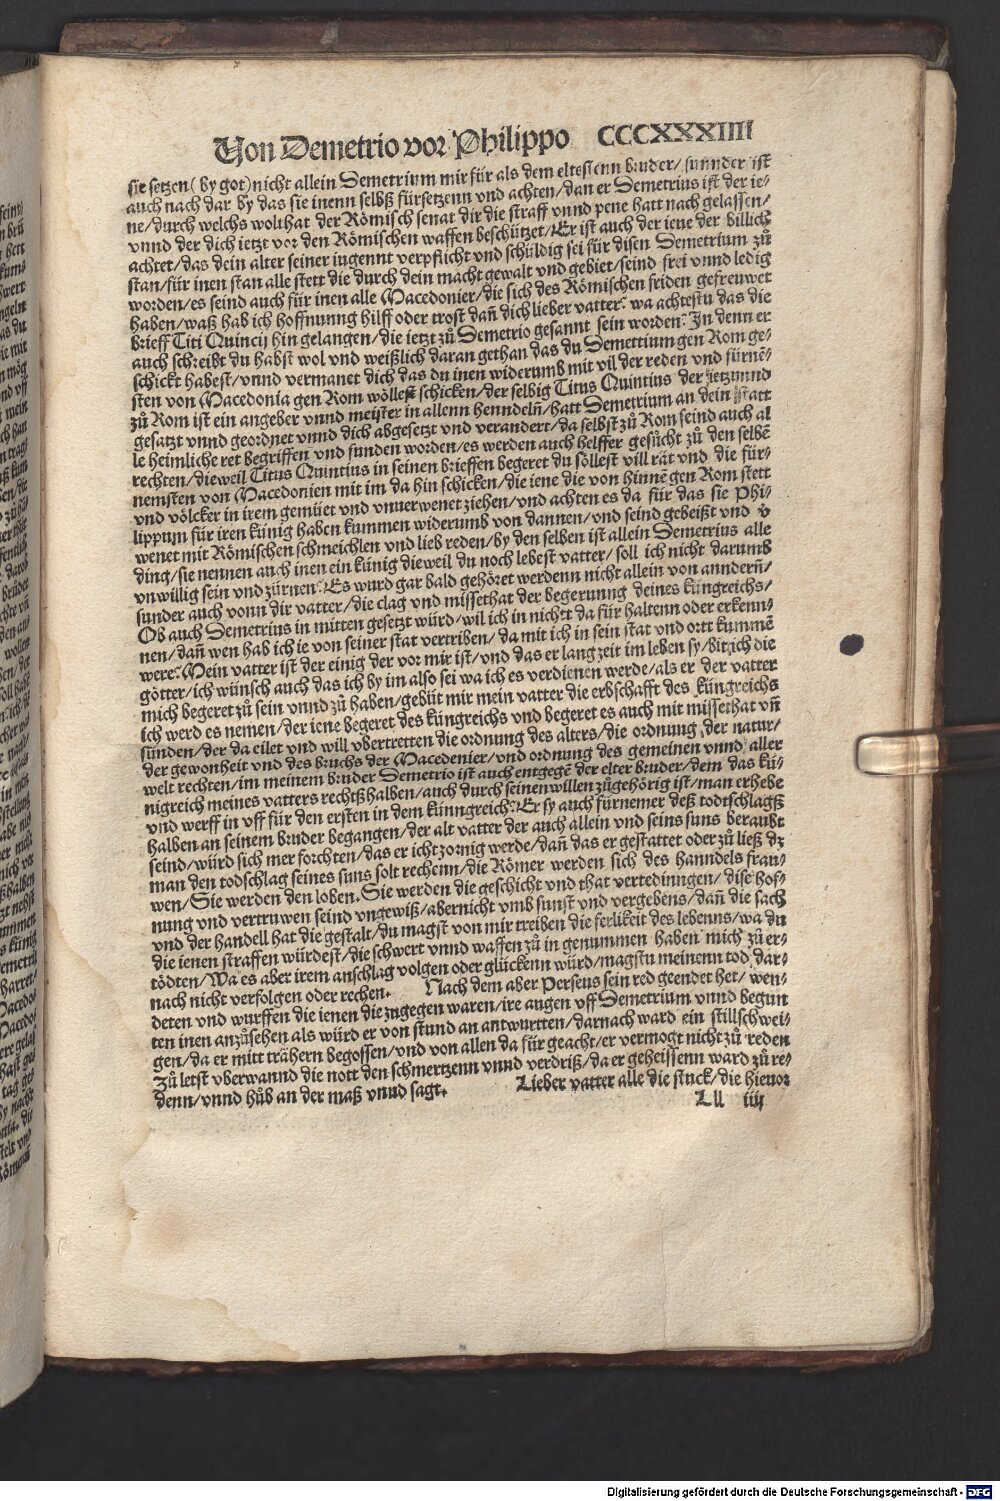 Von Demetrio vor Philippo CCCXXXIIII
sie setzen (by got) nicht allein Demetrium mir für als dem eltestenn bruder/ sunnder ist
auch nach dar by das sie inenn selbß fürsetzenn vnd achten/dan er Demetrius ist der ie⸗
ne/durch welchs wolthat der Römisch senat dir die straff vnnd pene hatt nach gelassen/
vnnd der dich ietzt vor den Römischen waffen beschützet/Er ist auch der iene der billich
achtet/das dein alter seiner iugennt verpflicht vnd schuldig sei für disen Demetrium zů
stan/für inen stan alle stett die durch dein macht gewalt vnd gebiet/seind frei vnnd ledig
worden/es seind auch für inen alle Macedonier/die sich des Römischen friden gefreuwet
haben/waß hab ich hoffnunng hilff oder trost dañ dich lieber vatter? wa achtestu das die
brieff Titi Quincij hin gelangen/die ietzt zů Demetrio gesannt sein worden? In denn er
auch schreibt du habst wol vnd weißlich daran gethan das du Demettium gen Rom ge⸗
schickt habest/vnnd vermanet dich das du inen widerumb mit vil der reden vnd fürnē⸗
sten von Macedonia gen Rom wöllest schicken/der selbig Titus Quintius der ietzunnd
zů Rom ist ein angeber vnnd meister in allenn henndelñ/hatt Demetrium an dein statt
gesatzt vnnd geordnet vnnd dich abgesetzt vnd verandert/da selbst zů Rom seind auch al
le heimliche ret begriffen vnd funden worden/es werden auch helffer gesůcht zů den selbē
rechten/dieweil Titus Quintius in seinen brieffen begeret du söllest vill rät vnd die für⸗
nemsten von Macedonien mit im da hin schicken/die iene die von hinnē gen Rom stett
vnd völcker in irem gemüet vnd vnuerwenet ziehen/vnd achten es da für das sie Phi⸗
lippum für iren künig haben kummen widerumb von dannen/vnd seind gebeißt vnd v
wenet mit Römischen schmeichlen vnd lieb reden/by den selben ist allein Demetrius alle
ding/sie nennen auch inen ein künig dieweil du noch lebest vatter/soll ich nicht darumb
vnwillig sein vnd zürnen? Es wurd gar bald gehöret werdenn nicht allein von anndern̄/
sunder auch vonn dir vatter/die clag vnd missethat der begerunng deines küngreichs/
Ob auch Demetrius in mitten gesetzt würd/wil ich in nichtz da für haltenn oder erkenn⸗
nen/dañ wen hab ich ie von seiner stat vertriben/da mit ich in sein stat vnd ortt kummē
were? Mein vatter ist der einig der vor mir ist/vnd das er lang zeit im leben sy/bit ich die
götter/ich wünsch auch das ich by im also sei wa ich es verdienen werde/als er der vatter
mich begeret zů sein vnnd zů haben/gebüt mir mein vatter die erbschafft des küngreichs
ich werd es nemen/der iene begeret des küngreichs vnd begeret es auch mit missethat vñ
sünden/der da eilet vnd will vbertretten die ordnung des alters/die ordnung der natur/
der gewonheit vnd des bruchs der Macedenier/vnd ordnung des gemeinen vnnd aller
welt rechten/im meinem bruder Demetrio ist auch entgegē der elter bruder/dem das kü⸗
nigreich meines vatters rechtßhalben/auch durch seinen willen zůgehörig ist/man erhebe
vnd werff in vff für den ersten in dem künngreich? Er sy auch fürnemer deß todtschlagß
halben an seinem bruder begangen/der alt vatter der auch allein vnd seins suns beraubt
seind/würd sich mer forchten/das er icht zornig werde/dañ das er gestattet oder zů ließ dz
man den todschlag seines suns solt rechenn/die Römer werden sich des hanndels fran⸗
wen/Sie werden den loben. Sie werden die geschicht vnd that vertedinngen/dise hof⸗
nung vnd vertruwen seind vngewiß/aber nicht vmb sunst vnd vergebens/dañ die sach
vnd der handell hat die gestalt/du magst von mir treiben die ferlikeit des lebenns/wa du
die ienen straffen würdest/die schwert vnnd waffen zů in genummen haben mich zů er⸗
tödten/Wa es aber irem anschlag volgen oder glückenn würd/magstu meinenn tod dar⸗
nach nicht verfolgen oder rechen. Nach dem aber Perseus sein red geendet het/ wen⸗
deten vnd wurffen die ienen die zugegen waren/ire augen vff Demetrium vnnd begun
ten inen anzůsehen als würd er von stund an antwurtten/darnach ward ein stillschwei⸗
gen/da er mitt trähern begossen/vnd von allen da für geacht/er vermogt nicht zů reden
Zů letst vberwannd die nott den schmertzenn vnnd verdriß/da er geheissenn ward zů re⸗
denn/vnnd hůb an der maß vnnd sagt. Lieber vatter alle die stuck/die hieuor
Ll iiij
Digitalisierung gefördert durch die Deutsche Forschungsgemeinschaft - DFG